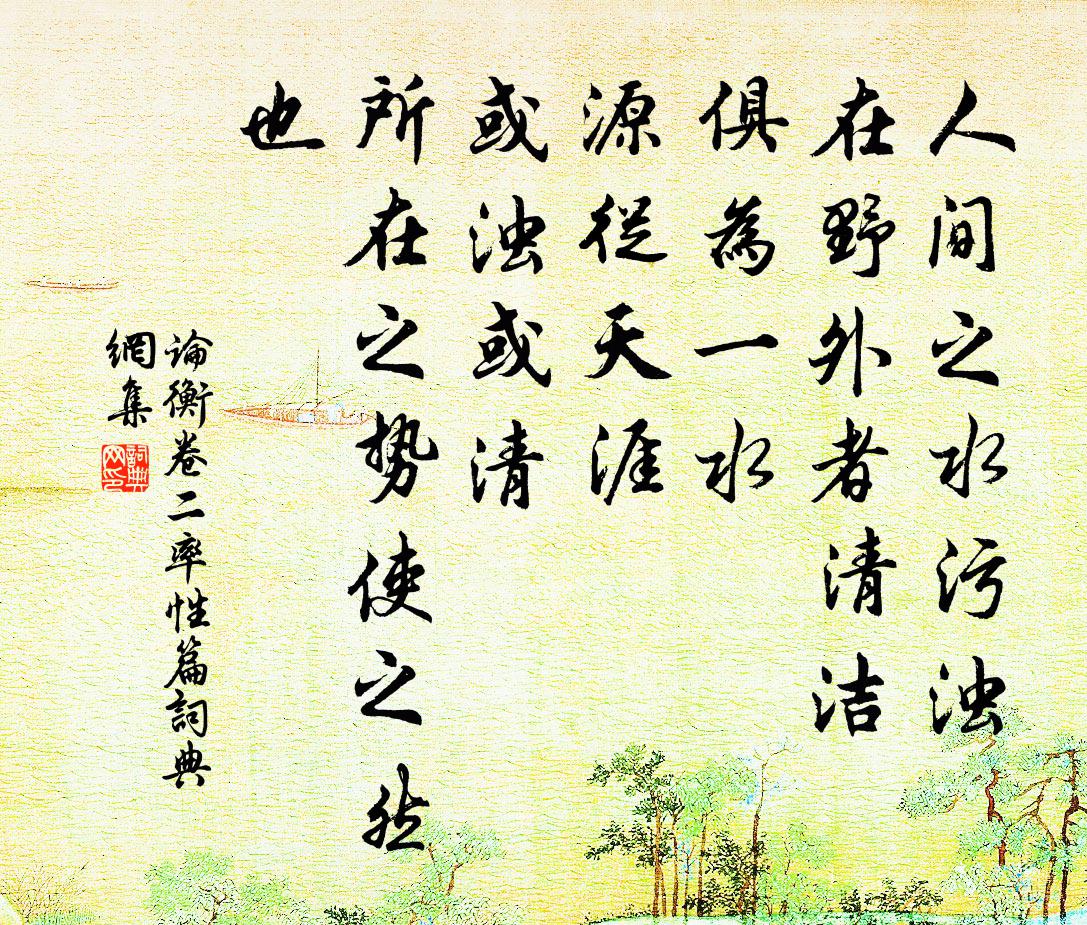 人间之水污浊
在野外者清洁
俱為一水
源從天涯
或浊或清
所在之势使之然
也
论衡卷二率性篇詞典
網集
詞典
网印